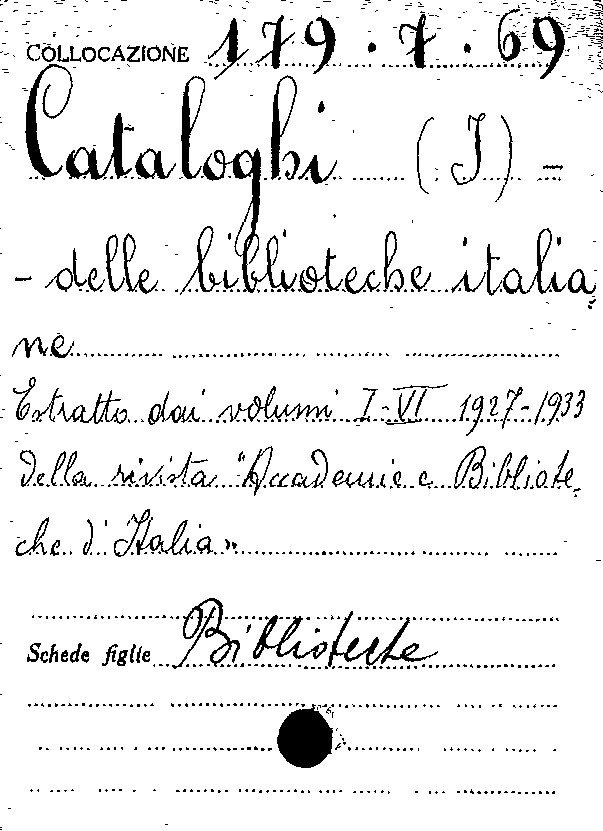 COLLOCAZIONE 179.7.69
Cataloghi (I) -
- delle biblioteche italia
ne
Estratto dai volumi I-VI 1927-1933
della rivista "Accademie e Bibliote,
che d'Italia"
Schede figlie Biblioteche